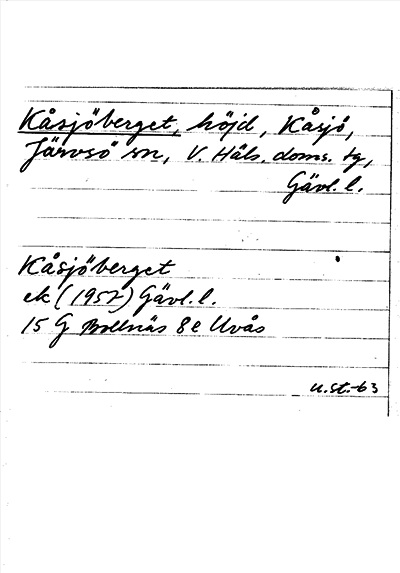 Kåsjöberget, höjd, Kåsjö,
Järvsö sn, V. Häls. doms. tg,
Gävl. l.
Kåsjöberget
ek (1957) Gävl. l.
15 G Bollnäs 8 e Uvås
U.St.-63